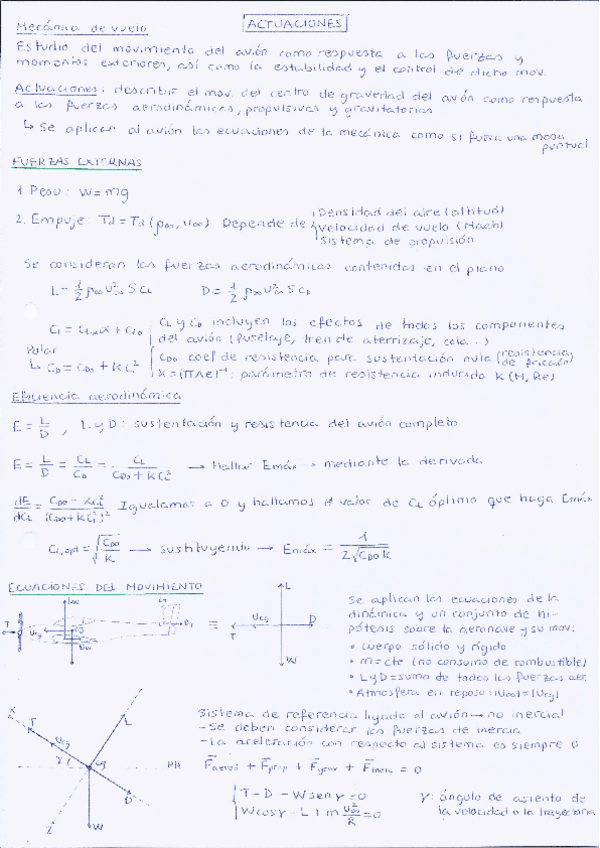 ACTUACIONES
Mecánica de vuelo
Estudio del movimiento del avión como respuesta a las fuerzas y
momentos exteriores, así como la estabilidad y el control de dicho mov.
Actuaciones: describir el mov. del centro de gravedad del avión como respuesta
a las fuerzas aerodinámicas, propulsivas y gravitatorias
↳ Se aplican al avión las ecuaciones de la mecánica como si fuera una masa
puntual
FUERZAS EXTERNAS
1 Peso: W = mg
2. Empuje: Td = Td (ρ∞, u∞) Depende de
Densidad del aire (altitud)
velocidad de vuelo (Mach)
Sistema de propulsión
Se consideran las fuerzas aerodinámicas contenidas en el plano
L = 1/2 ρ∞ U∞² S CL D = 1/2 ρ∞ U∞² S CD
CL = CLα α + CL0
CL y CD incluyen los efectos de todos los componentes
del avión (fuselaje, tren de aterrizaje, cola...)
Polar
↳ CD = CD0 + KCL²
CD0: coef de resistencia para sustentación nula (resistencia de fricción)
K = (πΛe)⁻¹: parámetro de resistencia inducida K (M, Re)
Eficiencia aerodinámica
E = L/D , L y D: sustentación y resistencia del avión completo
E = L/D = CL/CD = CL/(CD0 + KCL²) → Hallar Emáx → mediante la derivada
dE/dCL = (CD0 - KCL²)/(CD0 + KCL²)² Igualamos a 0 y hallamos el valor de CL óptimo que haga Emáx
CL,opt = √(CD0/K) → sustituyendo → Emáx = 1/(2√(CD0 K))
ECUACIONES DEL MOVIMIENTO
L
T Ucg D
W
Se aplican las ecuaciones de la
dinámica y un conjunto de hi-
pótesis sobre la aeronave y su mov:
• Cuerpo sólido y rígido
• m = cte (no consumo de combustible)
• L y D = suma de todas las fuerzas aer.
• Atmosfera en reposo: |U∞| = |Ucg|
Sistema de referencia ligado al avión → no inercial
- Se deben considerar las fuerzas de inercia
- La aceleración con respecto al sistema es siempre 0
F aerod + F prop + F grav + F inerc = 0
T - D - W sen γ = 0
W cos γ - L + m U∞²/R = 0
γ: ángulo de asiento de
la velocidad o la trayectoria
X T Ucg γ cg L PH D Z W